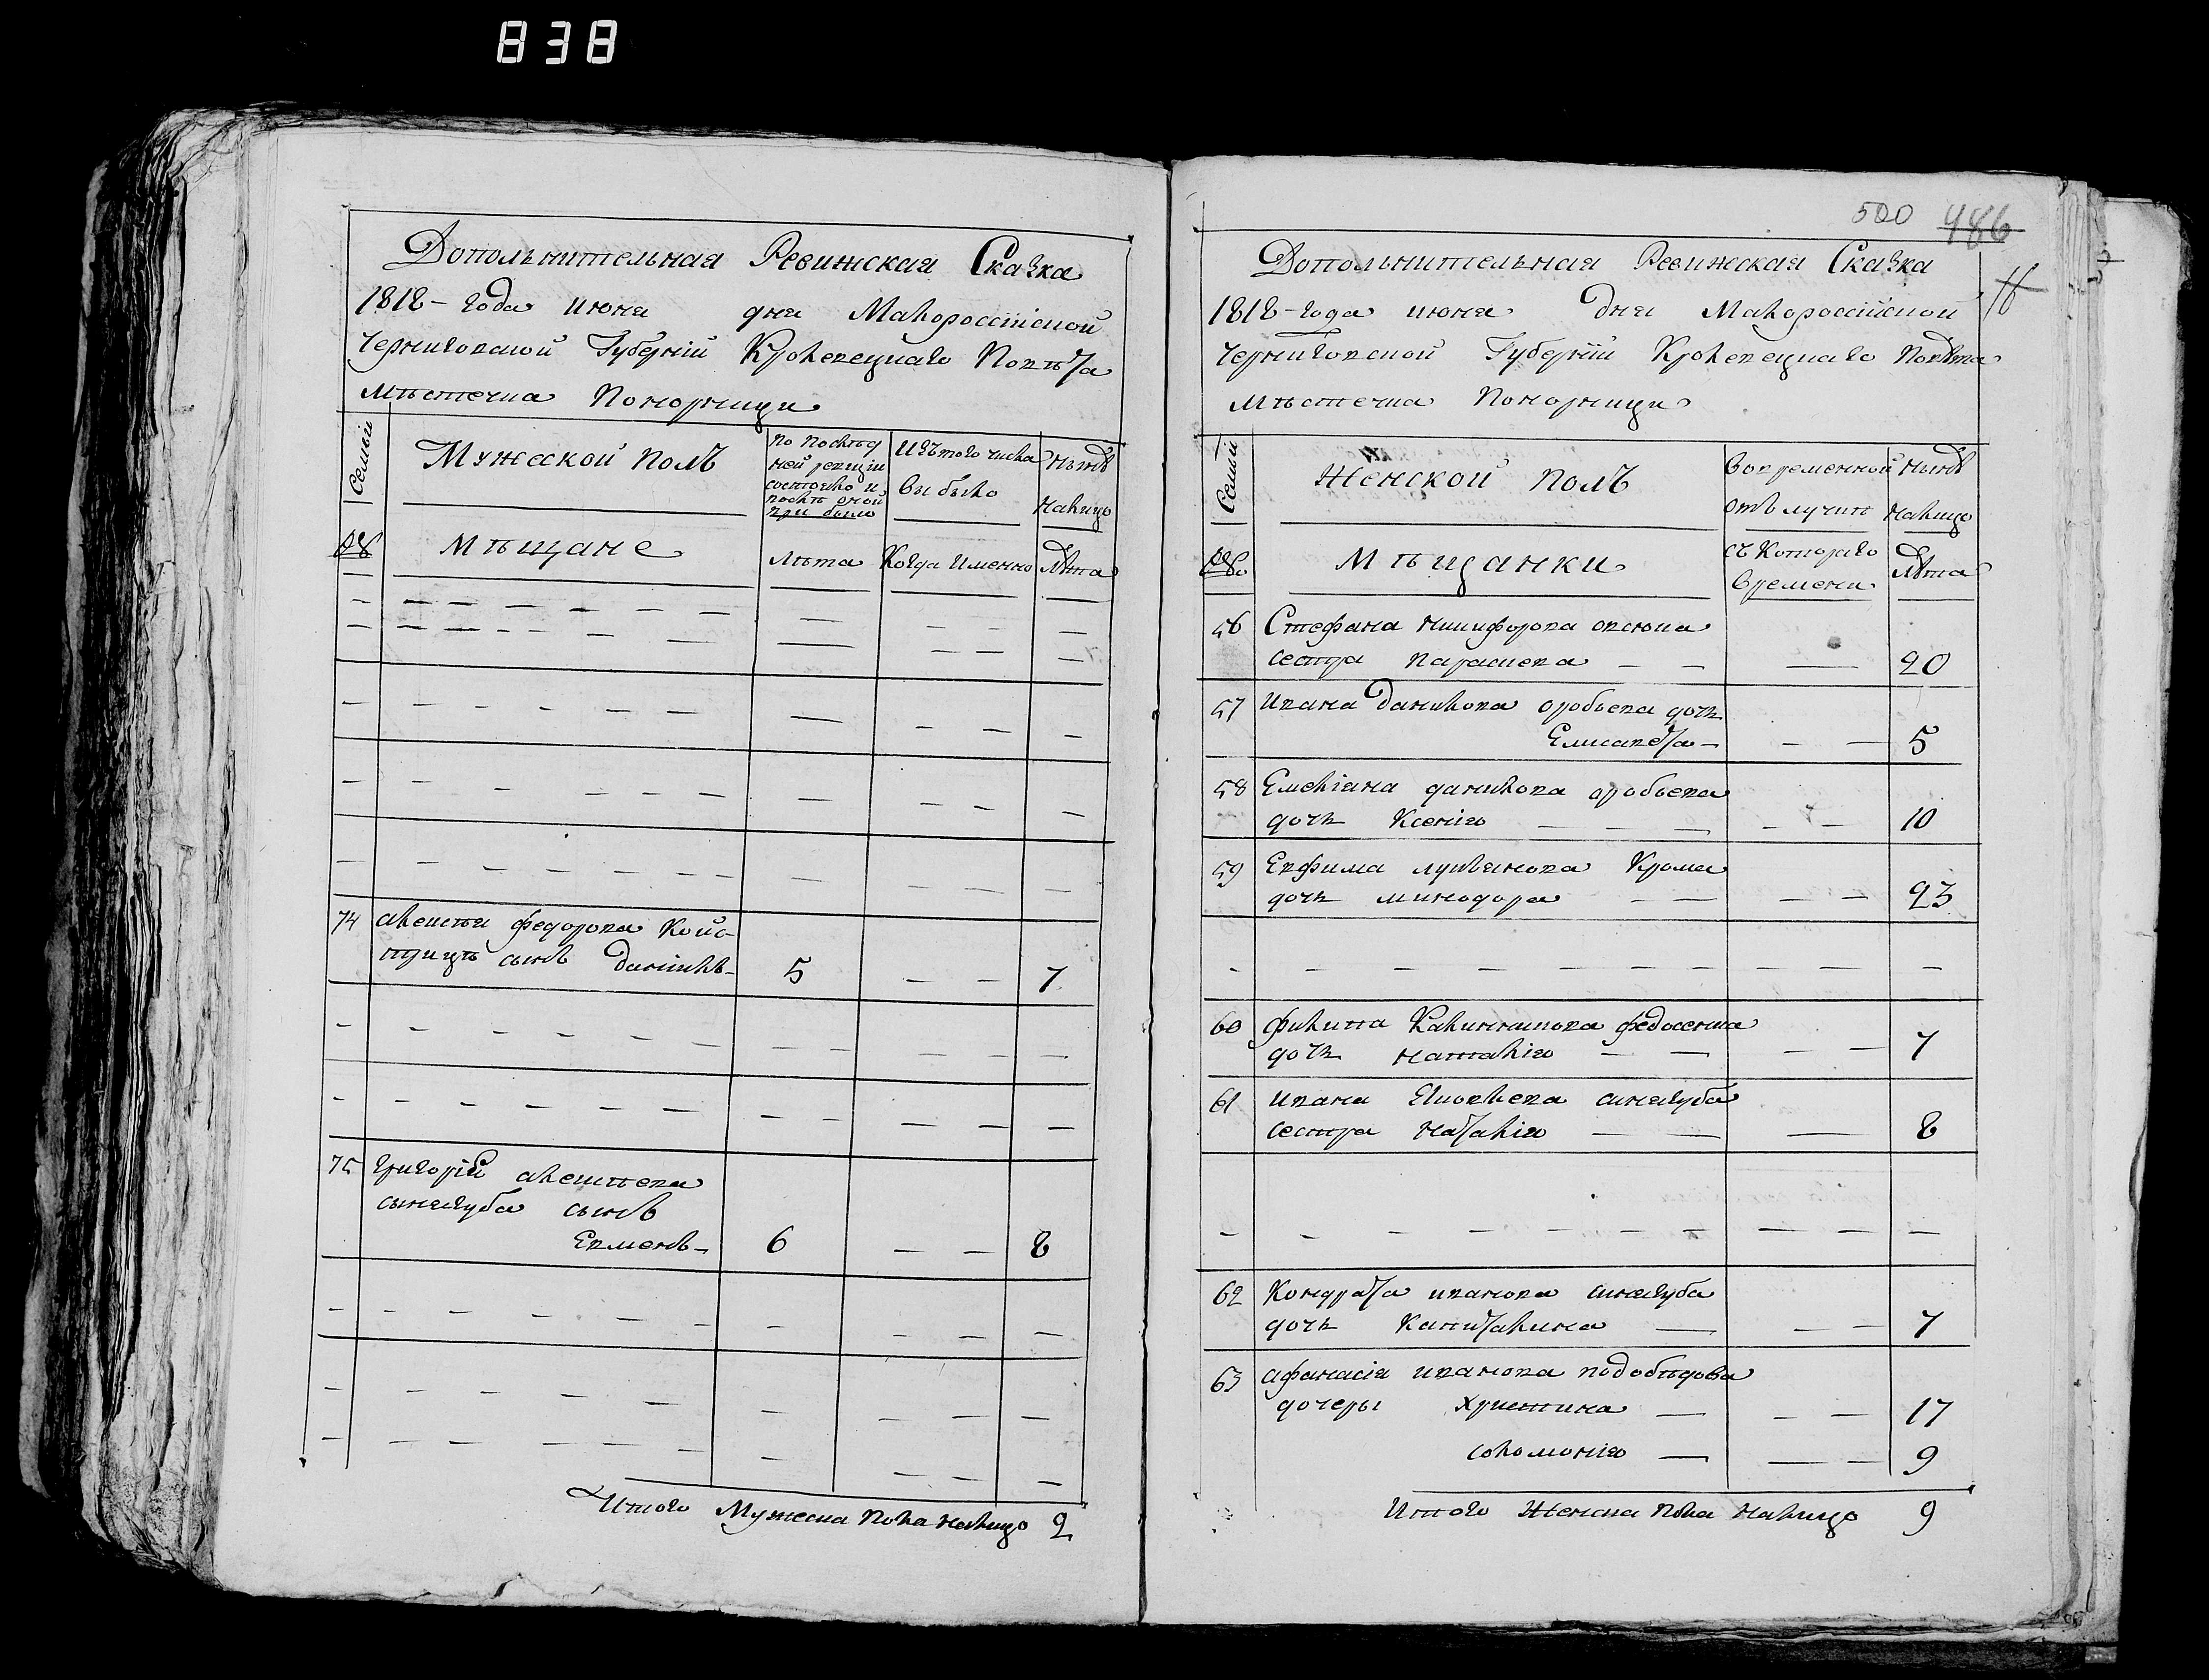 838
Дополънительная Ревижская Сказка
1818 - года июня дня Малороссiйской
Черниговской Губернiй Кролевецкаго Повѣта
Мѣстечка Понорницы
Семьи
Мужеской полъ
по послѣд
ней ревизiи
состояло и
послѣ оной
при было
Изъ того числа
вы было
нынѣ
налицо
№
Мѣщане
лѣта
Когда именно
Лѣта
74
алексѣя федорова
сынъ данiилъ
5
7
75
григорiй алексѣева
синегуба сынъ
6
8
Итого Мужеска пола налицо 2
500 486
Дополънительная Ревижская Сказка
1818 - года июня дня Малороссiйской
Черниговской Губернiй Кролевецкаго Повѣта
Мѣстечка Понорницы
Семьи
Женской полъ
Во временной
отълучкѣ
нынѣ
налицо
№
Мѣщанки
съ Котораго
времени
Лѣта
56
Стефана никифорова
сестра парасиева
20
57
ивана данилова оробьева дочь
Елисавета
5
58
Емелiяна данилова оробьева
дочь Ксенiю
10
59
Евфима лукьянова Крома
дочь минодора
23
60
филипа Калиникова федосенка
дочь наталiю
7
61
ивана синегуба
сестра наталiю
8
62
Кондрата иванова синегуба
дочь Капиталина
7
63
афанасiя иванова подобѣдова
дочеры христина
17
соломонiю
9
Итого Женска пола налицо 9